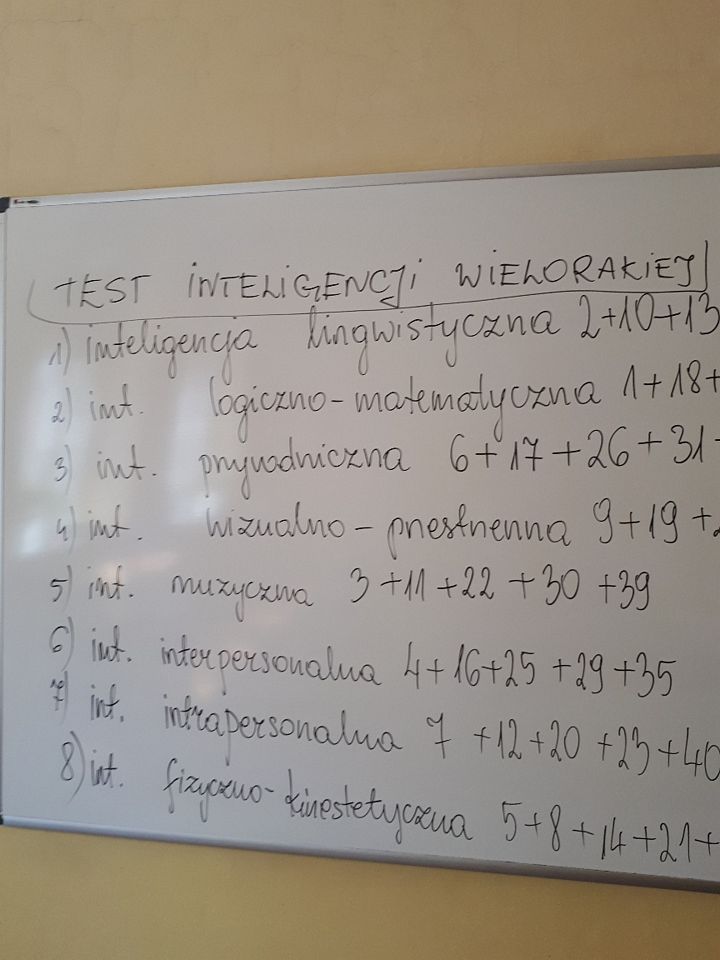 TEST INTELIGENCJI WIELORAKIEJ
1) inteligencja lingwistyczna 2+10+13
2) int. logiczno-matematyczna 1+18+
3) int. przyrodnicza 6+17+26+31
4) int. wizualno-przestrzenna 9+19+
5) int. muzyczna 3+11+22+30+39
6) int. interpersonalna 4+16+25+29+35
7) int. intrapersonalna 7+12+20+23+40
8) int. fizyczno-kinestetyczna 5+8+14+21+